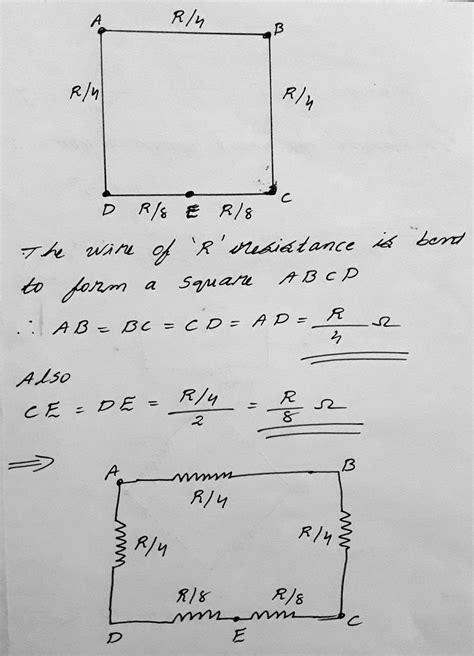 A R/4 B
R/4 R/4
D R/8 E R/8 C
The wire of 'R' resistance is bend
to form a square ABCD
∴ AB = BC = CD = AD = R/4 Ω
Also
CE = DE = (R/4)/2 = R/8 Ω
⇒ A B
R/4
R/4 R/4
R/8 R/8
D E C